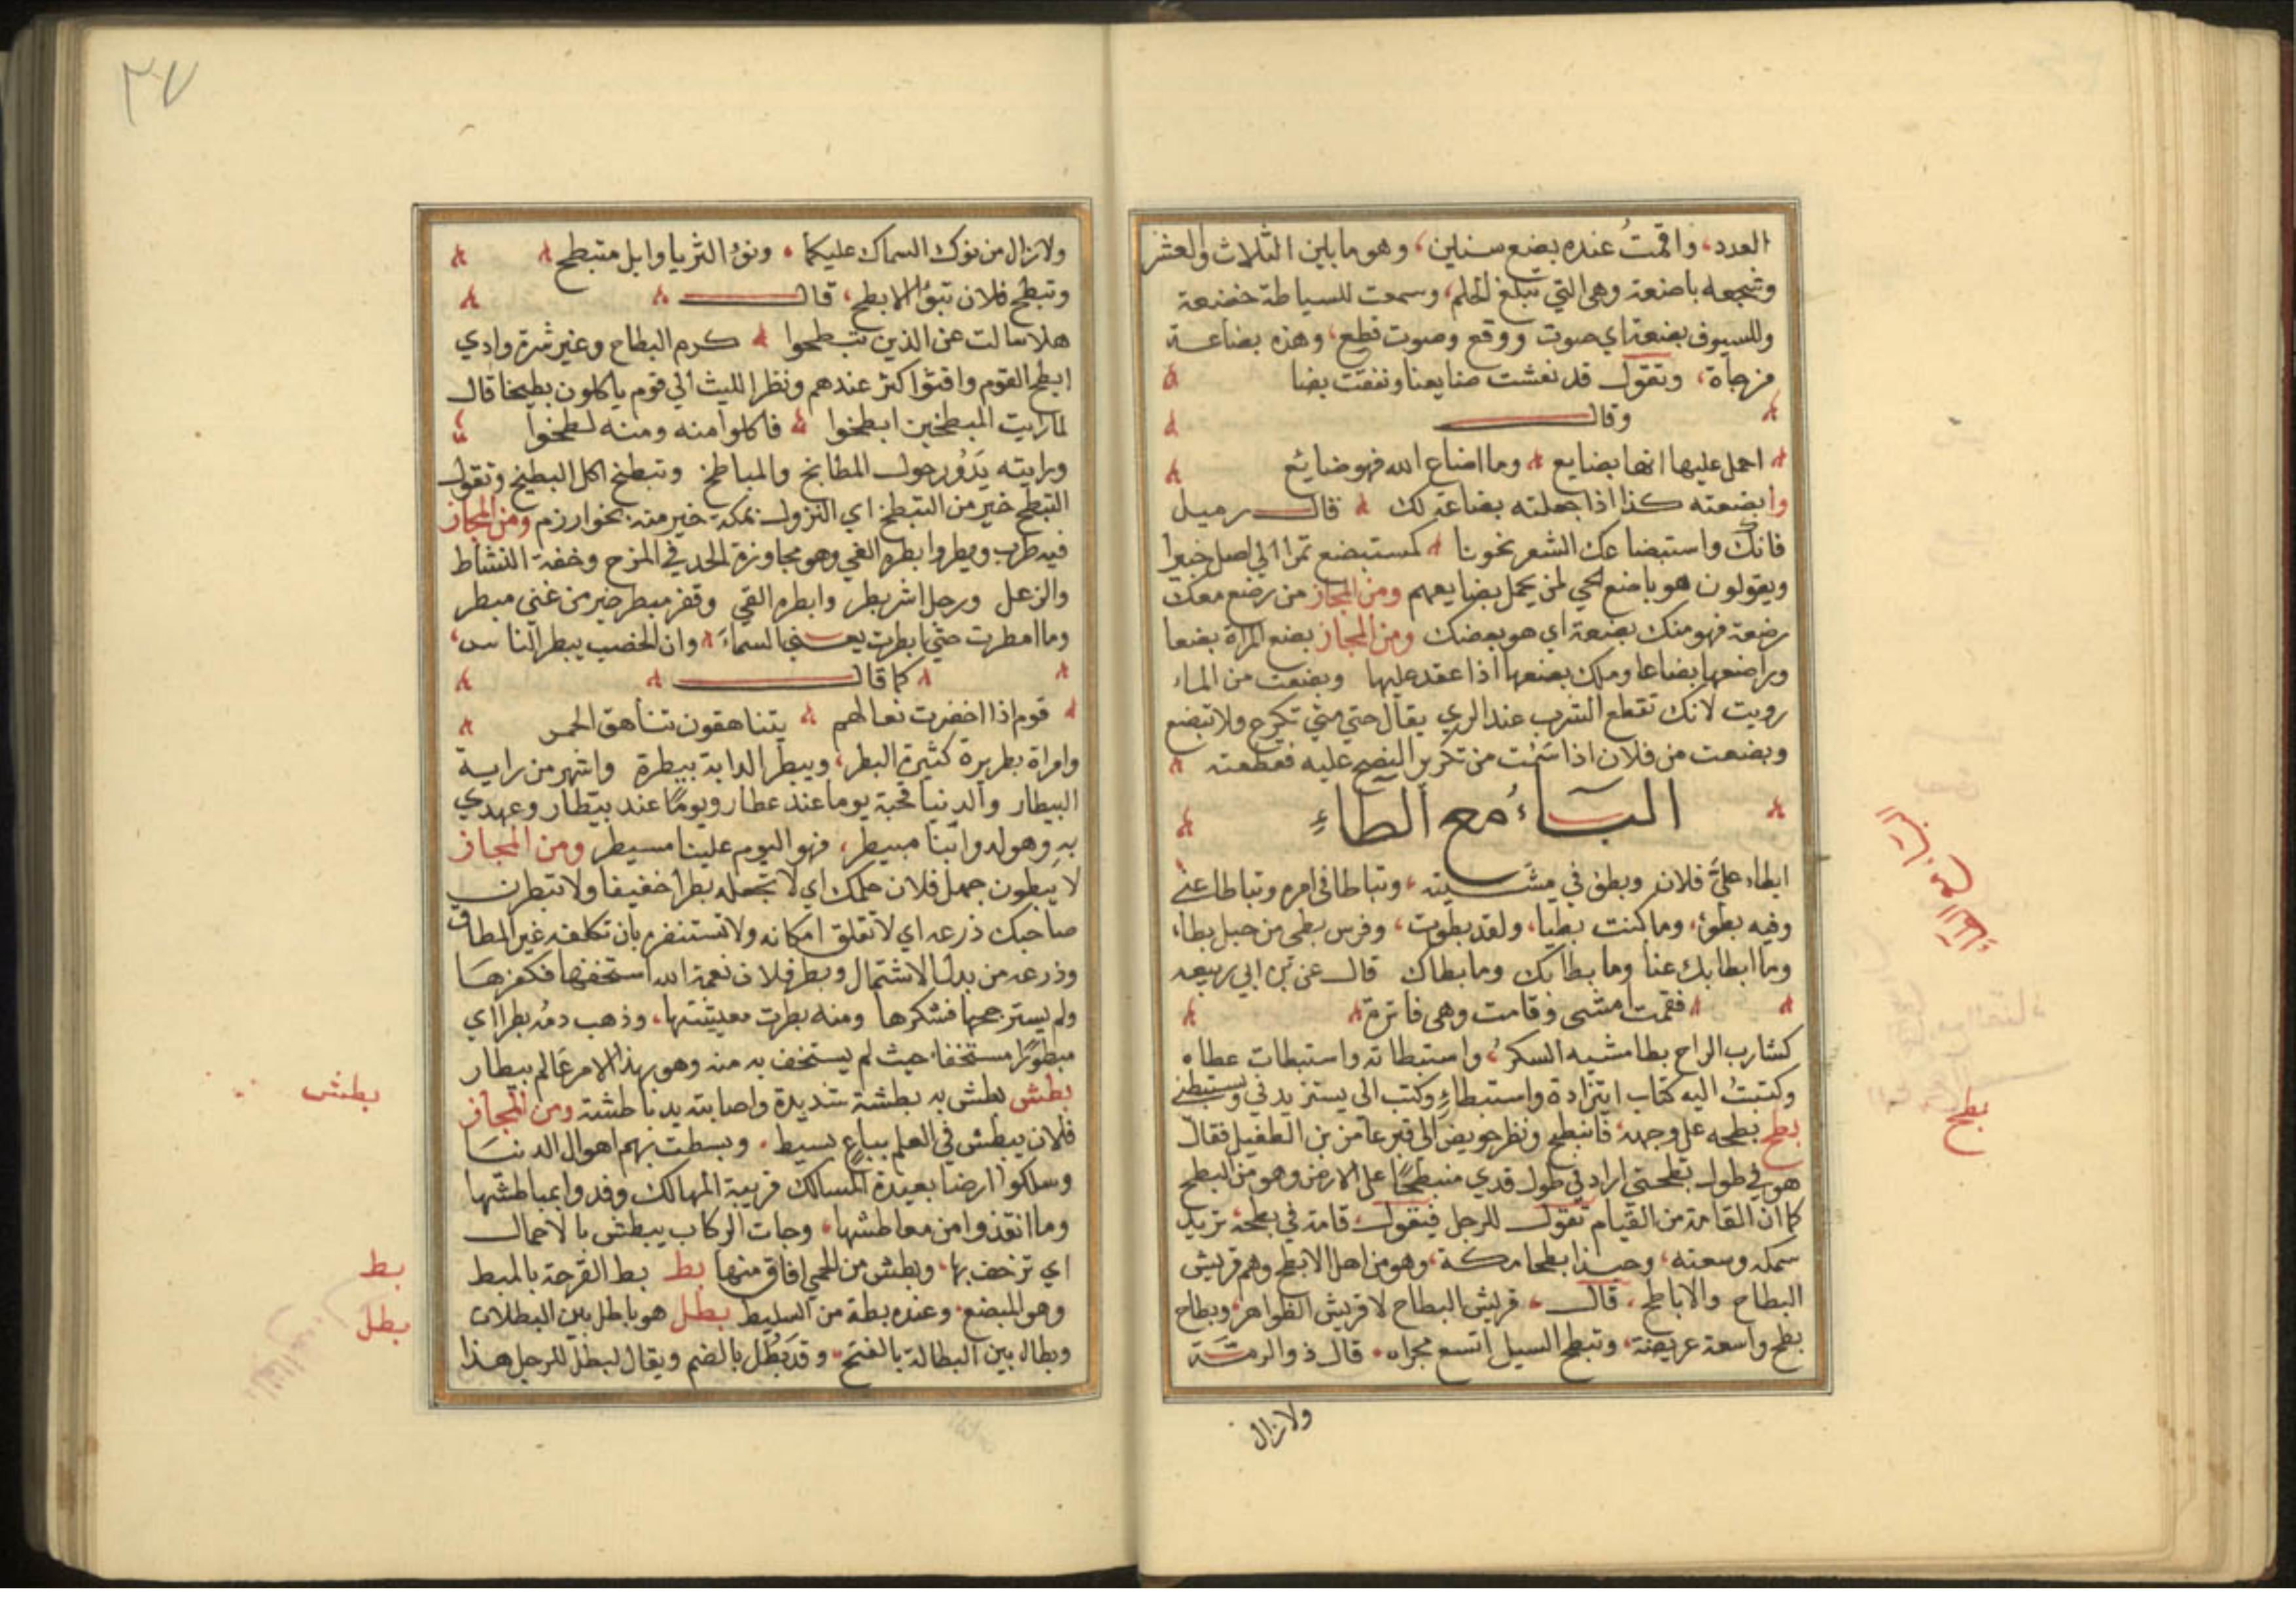 العدد، واقمتُ عنده بضع سنين، وهو ما بين الثلاث والعشر
وشجعله باضعة وهي التي تبلغ الحلم، وسمعت للسياط خضعة
وللسيوف بضعة اي صوت ووقع وصوت قطع، وهذه بضاعة
مزجاة، وتقول قد نعشت صنايعنا ونفقت بضا
وقال
احمل عليها انها بضايع وما اضاع الله فهو ضائع
وابضعته كذا اذا جعلته بضاعة لك قال رميل
فانك واستبضاعك الشعر نحونا كمستبضع تمرا الي اصل خيبرا
ويقولون هو باضع الحي لمن يحمل بضايعهم ومن المجاز من رضع معك
رضعة فهو منك بضعة اي هو بعضك ومن المجاز بضع المراة بضعا
وباضعها بضاعا وملك بضعها اذا عقد عليها وبضعت من الماء
رويت لانك تقطع الشرب عند الري يقال حتي متي تكرع ولا تبضع
وبضعت من فلان اذا سئمت من تكرير النصح عليه فقطعته
الباءُ مع الطاءِ
ابطاء عليَّ فلان وبطؤ في مشيته، وتباطا في امره وتباطا عني
وفيه بطؤ، وما كنت بطيا، ولقد بطوت، وفرس بطى من خيل بطاء
وما ابطا بك عنا وما بطا بك وما بطاك قال عمر بن ابي ربيعه
فقمت امشي فقامت وهي فاترة
كشارب الراح بطا مشيه السكرُ، واستبطاته واستبطات عطاه
وكتبتُ اليه كتاب استزادة واستبطاءٍ وكتب الى يستزيدني ويستبطني
بطح بطحه على وجهه، فانبطح ونظر حويض الى قبر عامر بن الطفيل فقال
هو في طول بطحتي اراد في طول قدي منبطحًا على الارض وهو من البطح
كما ان القامة من القيام تقول للرجل فيقول قامة في بطحة، تريد
سمكه وسعته، وحبذا بطحا مكة، وهو من اهل الابطح وهم قريش
البطاح والاباطح، قال، قريش البطاح لا قريش الظواهر، وبطاح
بطح واسعة عريضة، وتبطح السيل اتسع مجراه، قال ذو الرمة
ولا زال
بطح
٣٧
ولا زال من نوك السماك عليكما، ونوء الثريا وابل متبطح
وتبطح فلان تبوَّا الابطح، قال
هلا سالت عن الذين تبطحوا كرم البطاح وخير ثرة وادي
ابطح القوم واقثؤا كثر عندهم ونظر الليث الي قوم ياكلون بطيخا قال
لما رايت المبطخين ابطخوا فاكلوا منه ومنه لطخوا
ورايته يَدُور حول المطابخ والمباطخ وتبطخ اكل البطيخ وتقول
التبطح خير من التبطخ اي النزول بمكة خير منه بخوارزم ومن المجاز
فيه طرب وبطر وابطره الغني وهو مجاوزة الحد في المرح وخفة النشاط
والزعل ورجل اشر بطر وابطره الغني وفقر مبطر خير من غني مبطر
وما امطرت حتي ابطرت يعني السماء وان الخصب يبطر الناس،
كما قال
قوم اذا اخضرت نعالهم يتناهقون تناهق الحمر
وامراة بطريرة كثيرة البطر، وبيطر الدابة بيطرة واشهر من راية
البيطار والدنيا قحبة يوما عند عطار ويومًا عند بيطار وعهدي
بهِ وهو لدوابنا مبيطر، فهو اليوم علينا مسيطر ومن المجاز
لا يبطرن جهل فلان حلمك اي لا تجعله بطرا خفيفا ولا تبطرن
صاحبك ذرعه اي لا تقلق امكانه ولا تستنفره بان تكلفه غير المطاق
وذرعه من بدل الاشتمال وبطر فلان نعمة الله استخفها فكفرها
ولم يسترجحها فشكرها ومنه بطرت معيشتها، وذهب دمه بطرا اي
مبطورًا مستخفا، حيث لم يستخف به منه وهو بهذا الامر عالم بيطار
بطش بطش به بطشة شديدة واصابته يد باطشة ومن المجاز
فلان يبطش في العلم بباعٍ بسيط، وبسطت بهم اهوال الدنيا
وسلكوا ارضا بعيدة المسالك قريبة المهالك وفدوا بمباطشها
وما انقذوا من معاطشها، وجات الركاب يبطش بالاحمال
اي تزحف بها، وبطش من الحمي افاق منها بط بط القرحة بالمبط
وهو المبضع، وعنده بطة من السليط بطل هو باطل بين البطلان
وبطال بين البطالة بالفتح، وقد بَطُل بالضم ويقال لبطل الرجل هذا
بطش
بط
بطل